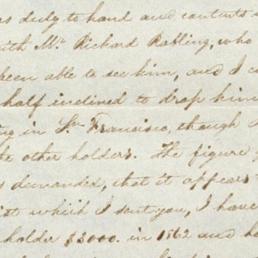 as duly to hand and contents
with Mr Richard Rabling, who
been able to see him, and I c
half inclined to drop him
ng in Sn Francisco, though
he other holders. The figure
s demanded, that it appears
ist which I sent you, I have
holder $3000. in 1862 and ha